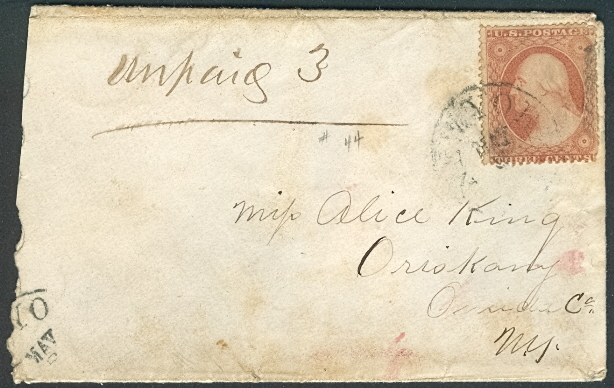 Unpaid 3
U.S. POSTAGE
THREE CENTS
# 44
Miss Alice King
Oriskany
Oneida Co.
NY.
MAY